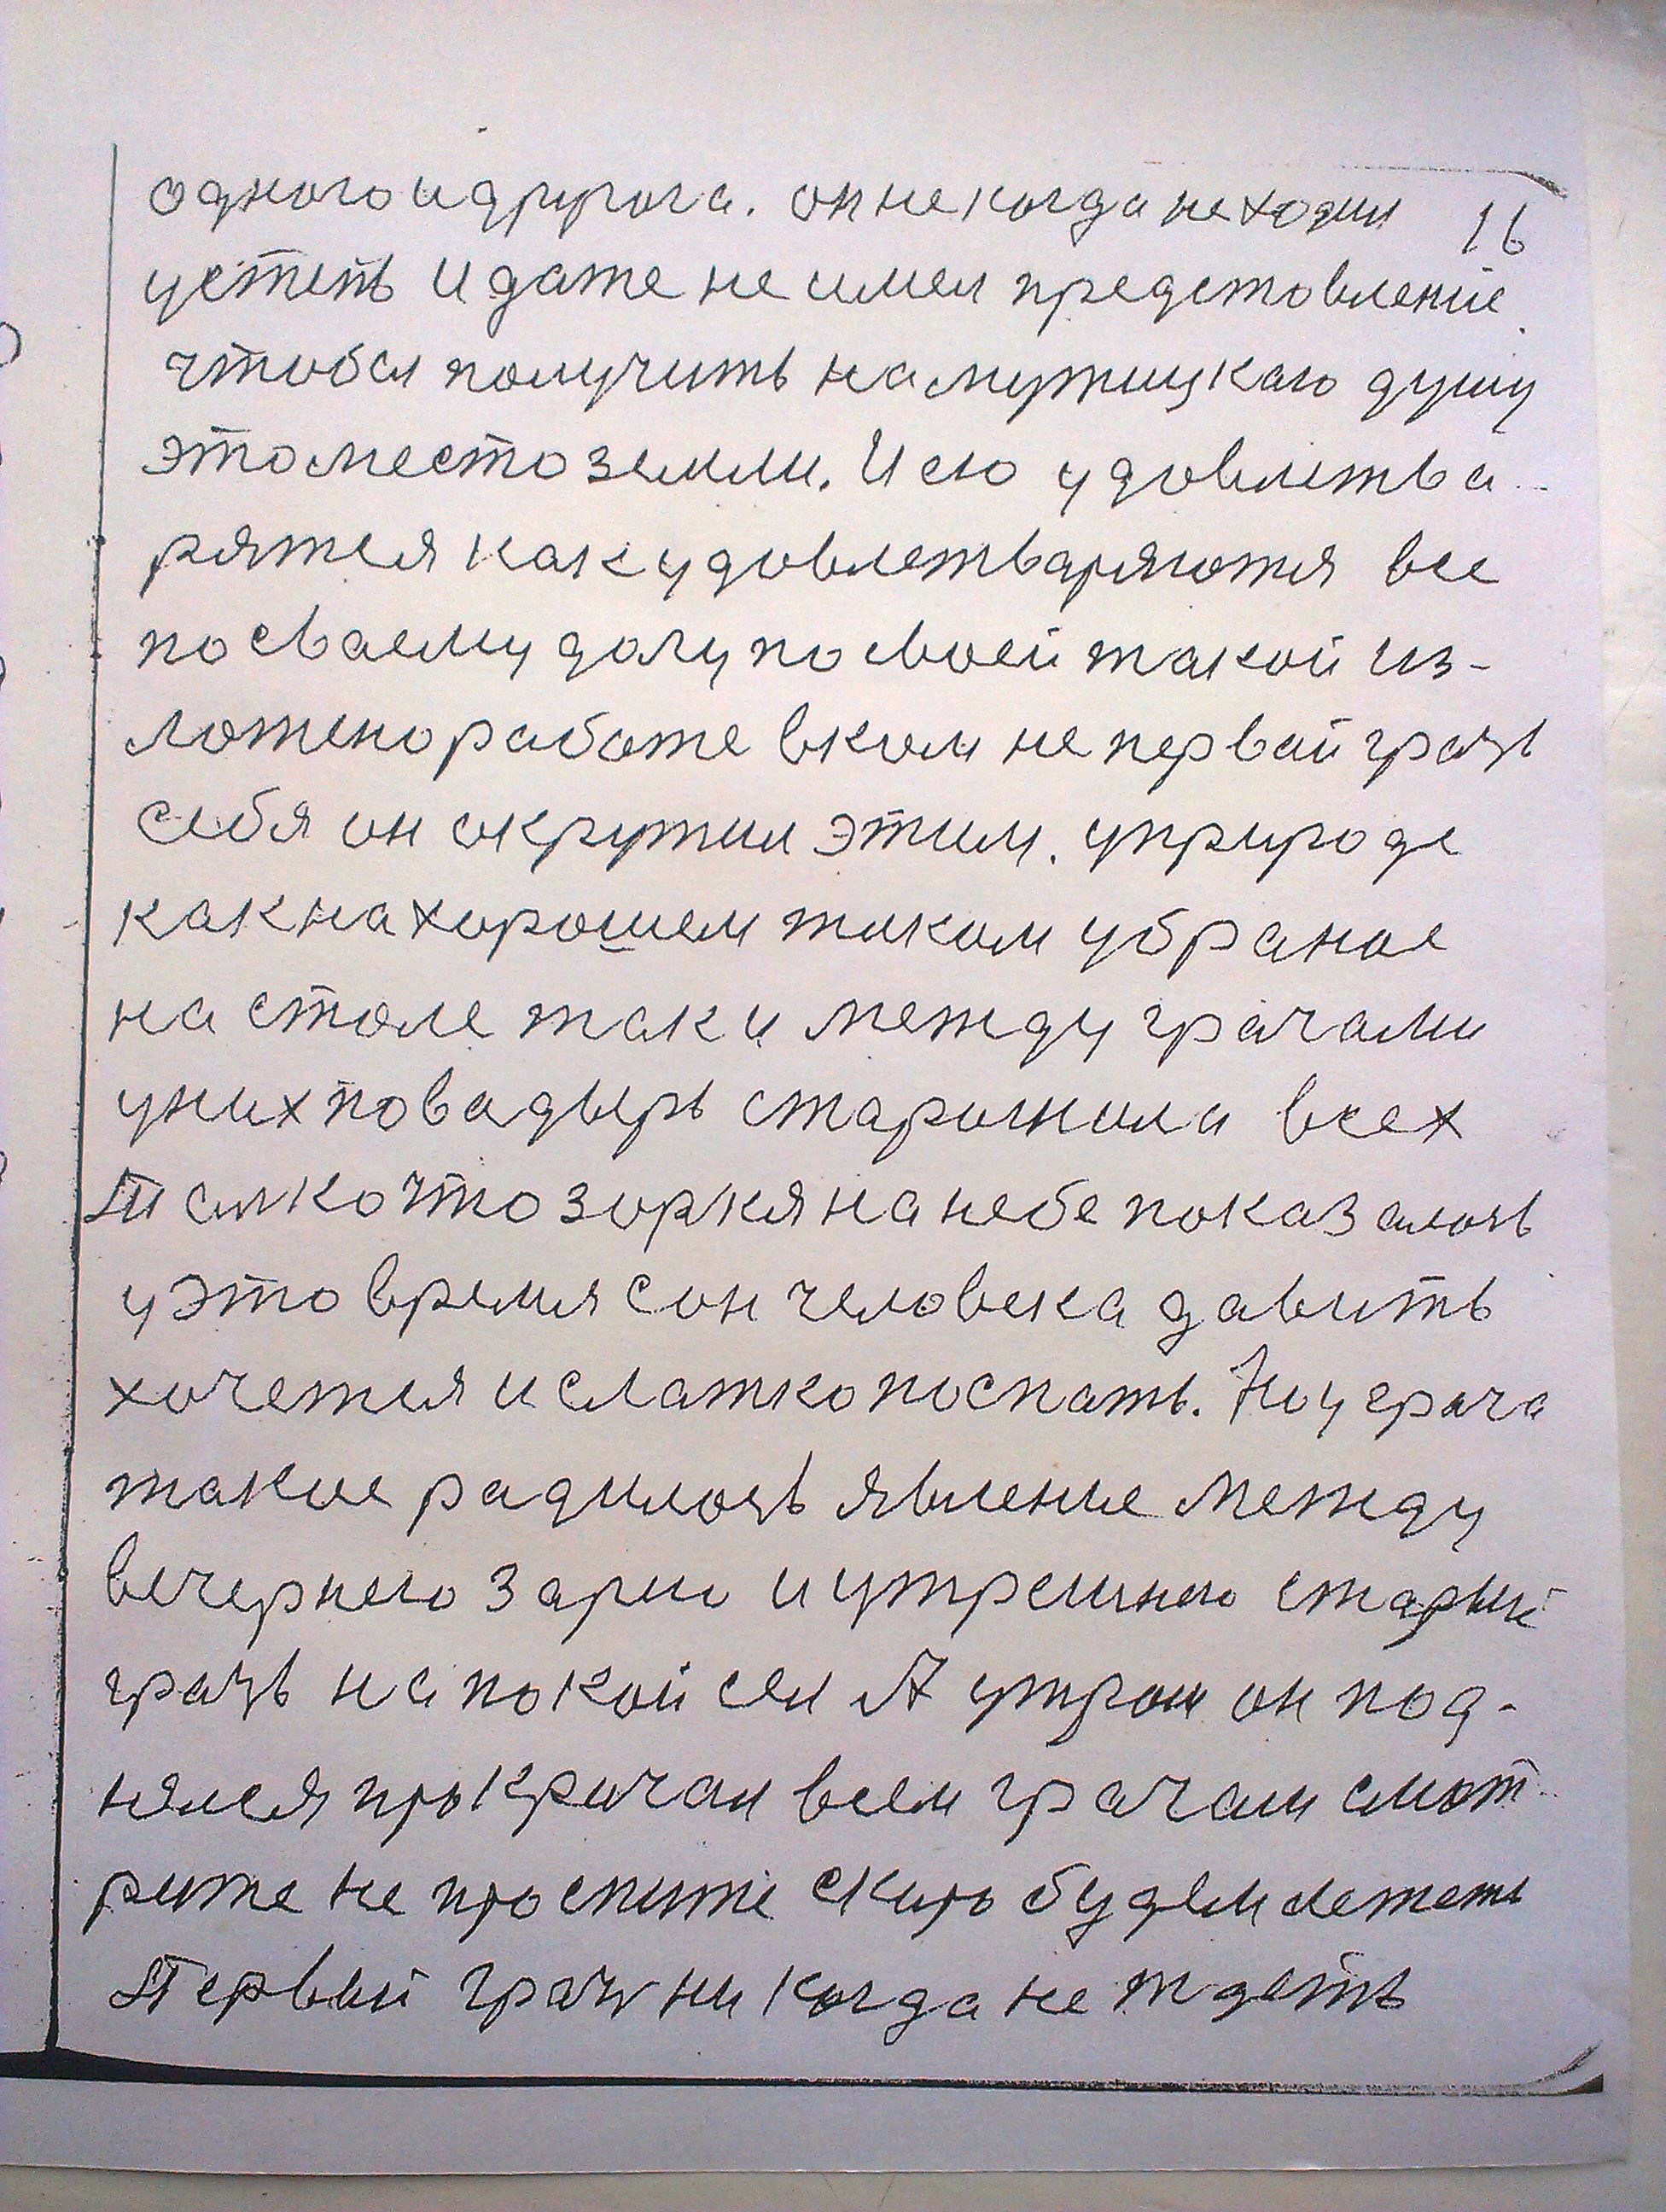 одного и другога. он не когда не ходил 16
устепь и даже не имел предстовление
чтобы получить на мужицкаю душу
это место земли. И ею удовлетва-
рятся как удовлетваряются все
по сваему долу по своей такой из-
ложено работе вком не первай грачь
себя он окружил этим. уприроде
как на хорошем таком убраное
на столе так и между грачами
у них повадырь старожила всех
Толко что зоркя на небе показалось
у это время сон человека давить
хочется и слатко поспать. Но у грача
такие радилось явление между
вечернею зарею и утрешнею старый
грачь на покой сел А утром он под-
нялся прокричал всем грачам смот-
рите не проспите скиро будем лететь
Первый грач ни когда не ждеть